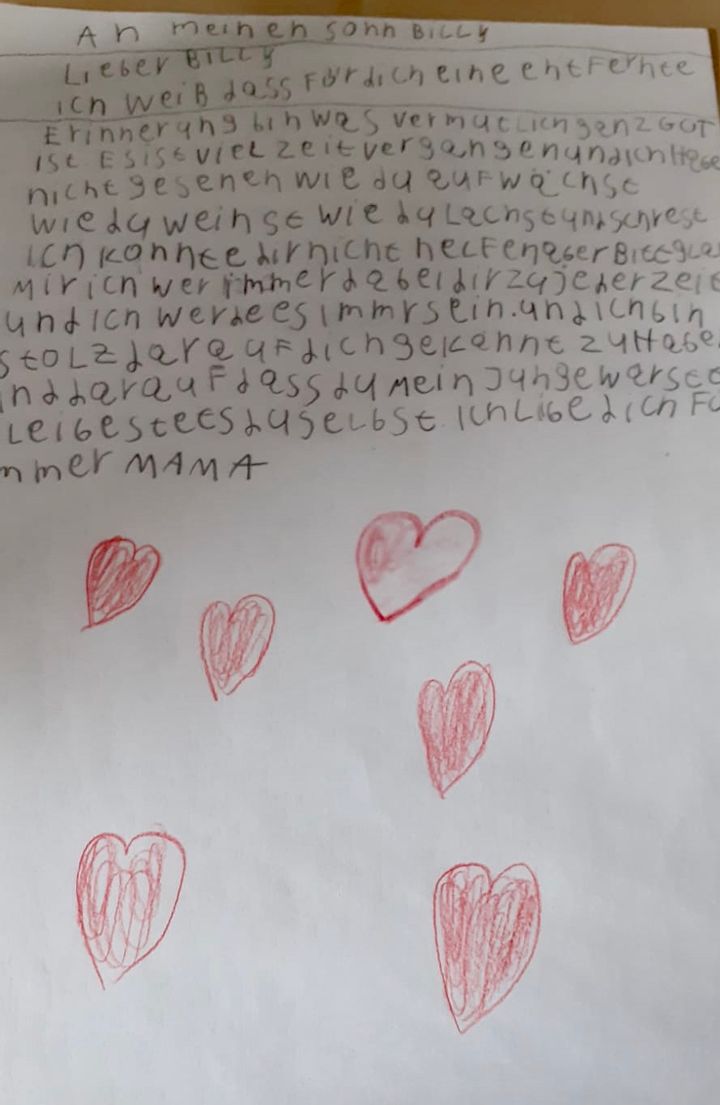 An meinen sohn BiLLy
Lieber BiLLy
ich weiß dass Fürdich eine entFernte
Erinnerung bin was vermutlich ganz GuT
ist Es ist viel zeit vergangen und ich Habe
nicht gesehen wie du auFwächst
wie du weinst wie du Lachst und schrest
ich konnte dir nicht helfen aber Bitte gLau
Mir ich wer immer dabei dir zu jeder zeit
und ich werde es immrsein. und ich bin
stoLz darauF dich gekannt zu Habe
und darauF dass du Mein junge warst
Leibe stets du selbst. ich Libe dich Fü
mmer MAMA